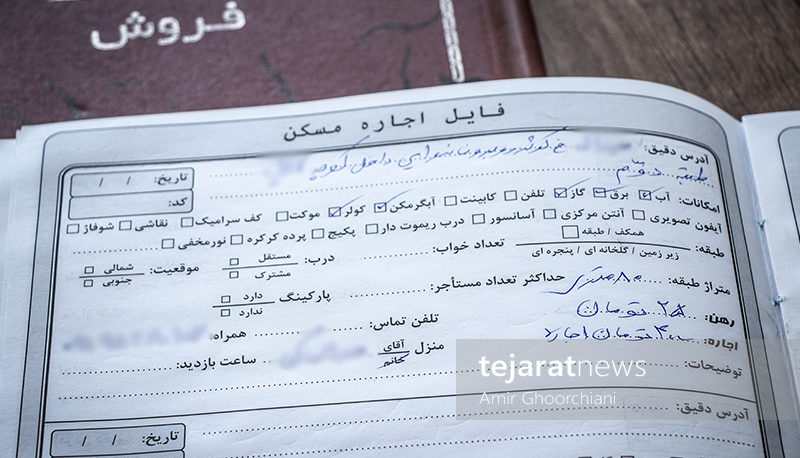 فروش
فایل اجاره مسکن
آدرس دقیق: داخل کوچه
طبقه دوم
تاریخ: / /
کد:
امکانات: آب برق گاز تلفن کابینت آبگرمکن کولر موکت کف سرامیک نقاشی شوفاژ
آیفون تصویری آنتن مرکزی آسانسور درب ریموت دار پکیج پرده کرکره نورمخفی
طبقه: همکف / طبقه
زیر زمین / گلخانه ای / پنجره ای
تعداد خواب: درب: مستقل
مشترک
موقعیت: شمالی
جنوبی
متراژ طبقه: ۸۰ متری حداکثر تعداد مستأجر: پارکینگ دارد
ندارد
رهن: ۲۸ تومان تلفن تماس: همراه
اجاره: تومان اجاره منزل آقای
خانم
ساعت بازدید:
توضیحات:
tejaratnews
Amir Ghoorchiani
آدرس دقیق:
تاریخ: / /